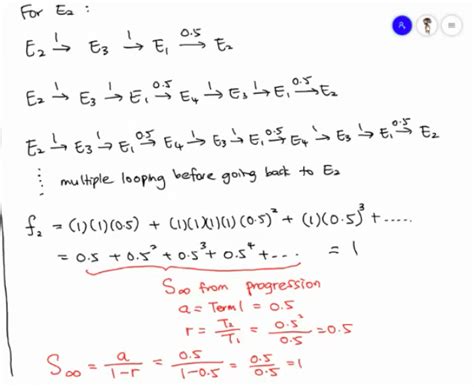 For E₂ :
E₂ →¹ E₃ →¹ E₁ →⁰·⁵ E₂
E₂ →¹ E₃ →¹ E₁ →⁰·⁵ E₄ →¹ E₃ →¹ E₁ →⁰·⁵ E₂
E₂ →¹ E₃ →¹ E₁ →⁰·⁵ E₄ →¹ E₃ →¹ E₁ →⁰·⁵ E₄ →¹ E₃ →¹ E₁ →⁰·⁵ E₂
⋮ multiple looping before going back to E₂
f₂ = (1)(1)(0.5) + (1)(1)(1)(1)(0.5)² + (1)(0.5)³ + .....
= 0.5 + 0.5² + 0.5³ + 0.5⁴ + ... = 1
S∞ from progression
a = Term 1 = 0.5
r = T₂/T₁ = 0.5²/0.5 = 0.5
S∞ = a/(1-r) = 0.5/(1-0.5) = 0.5/0.5 = 1